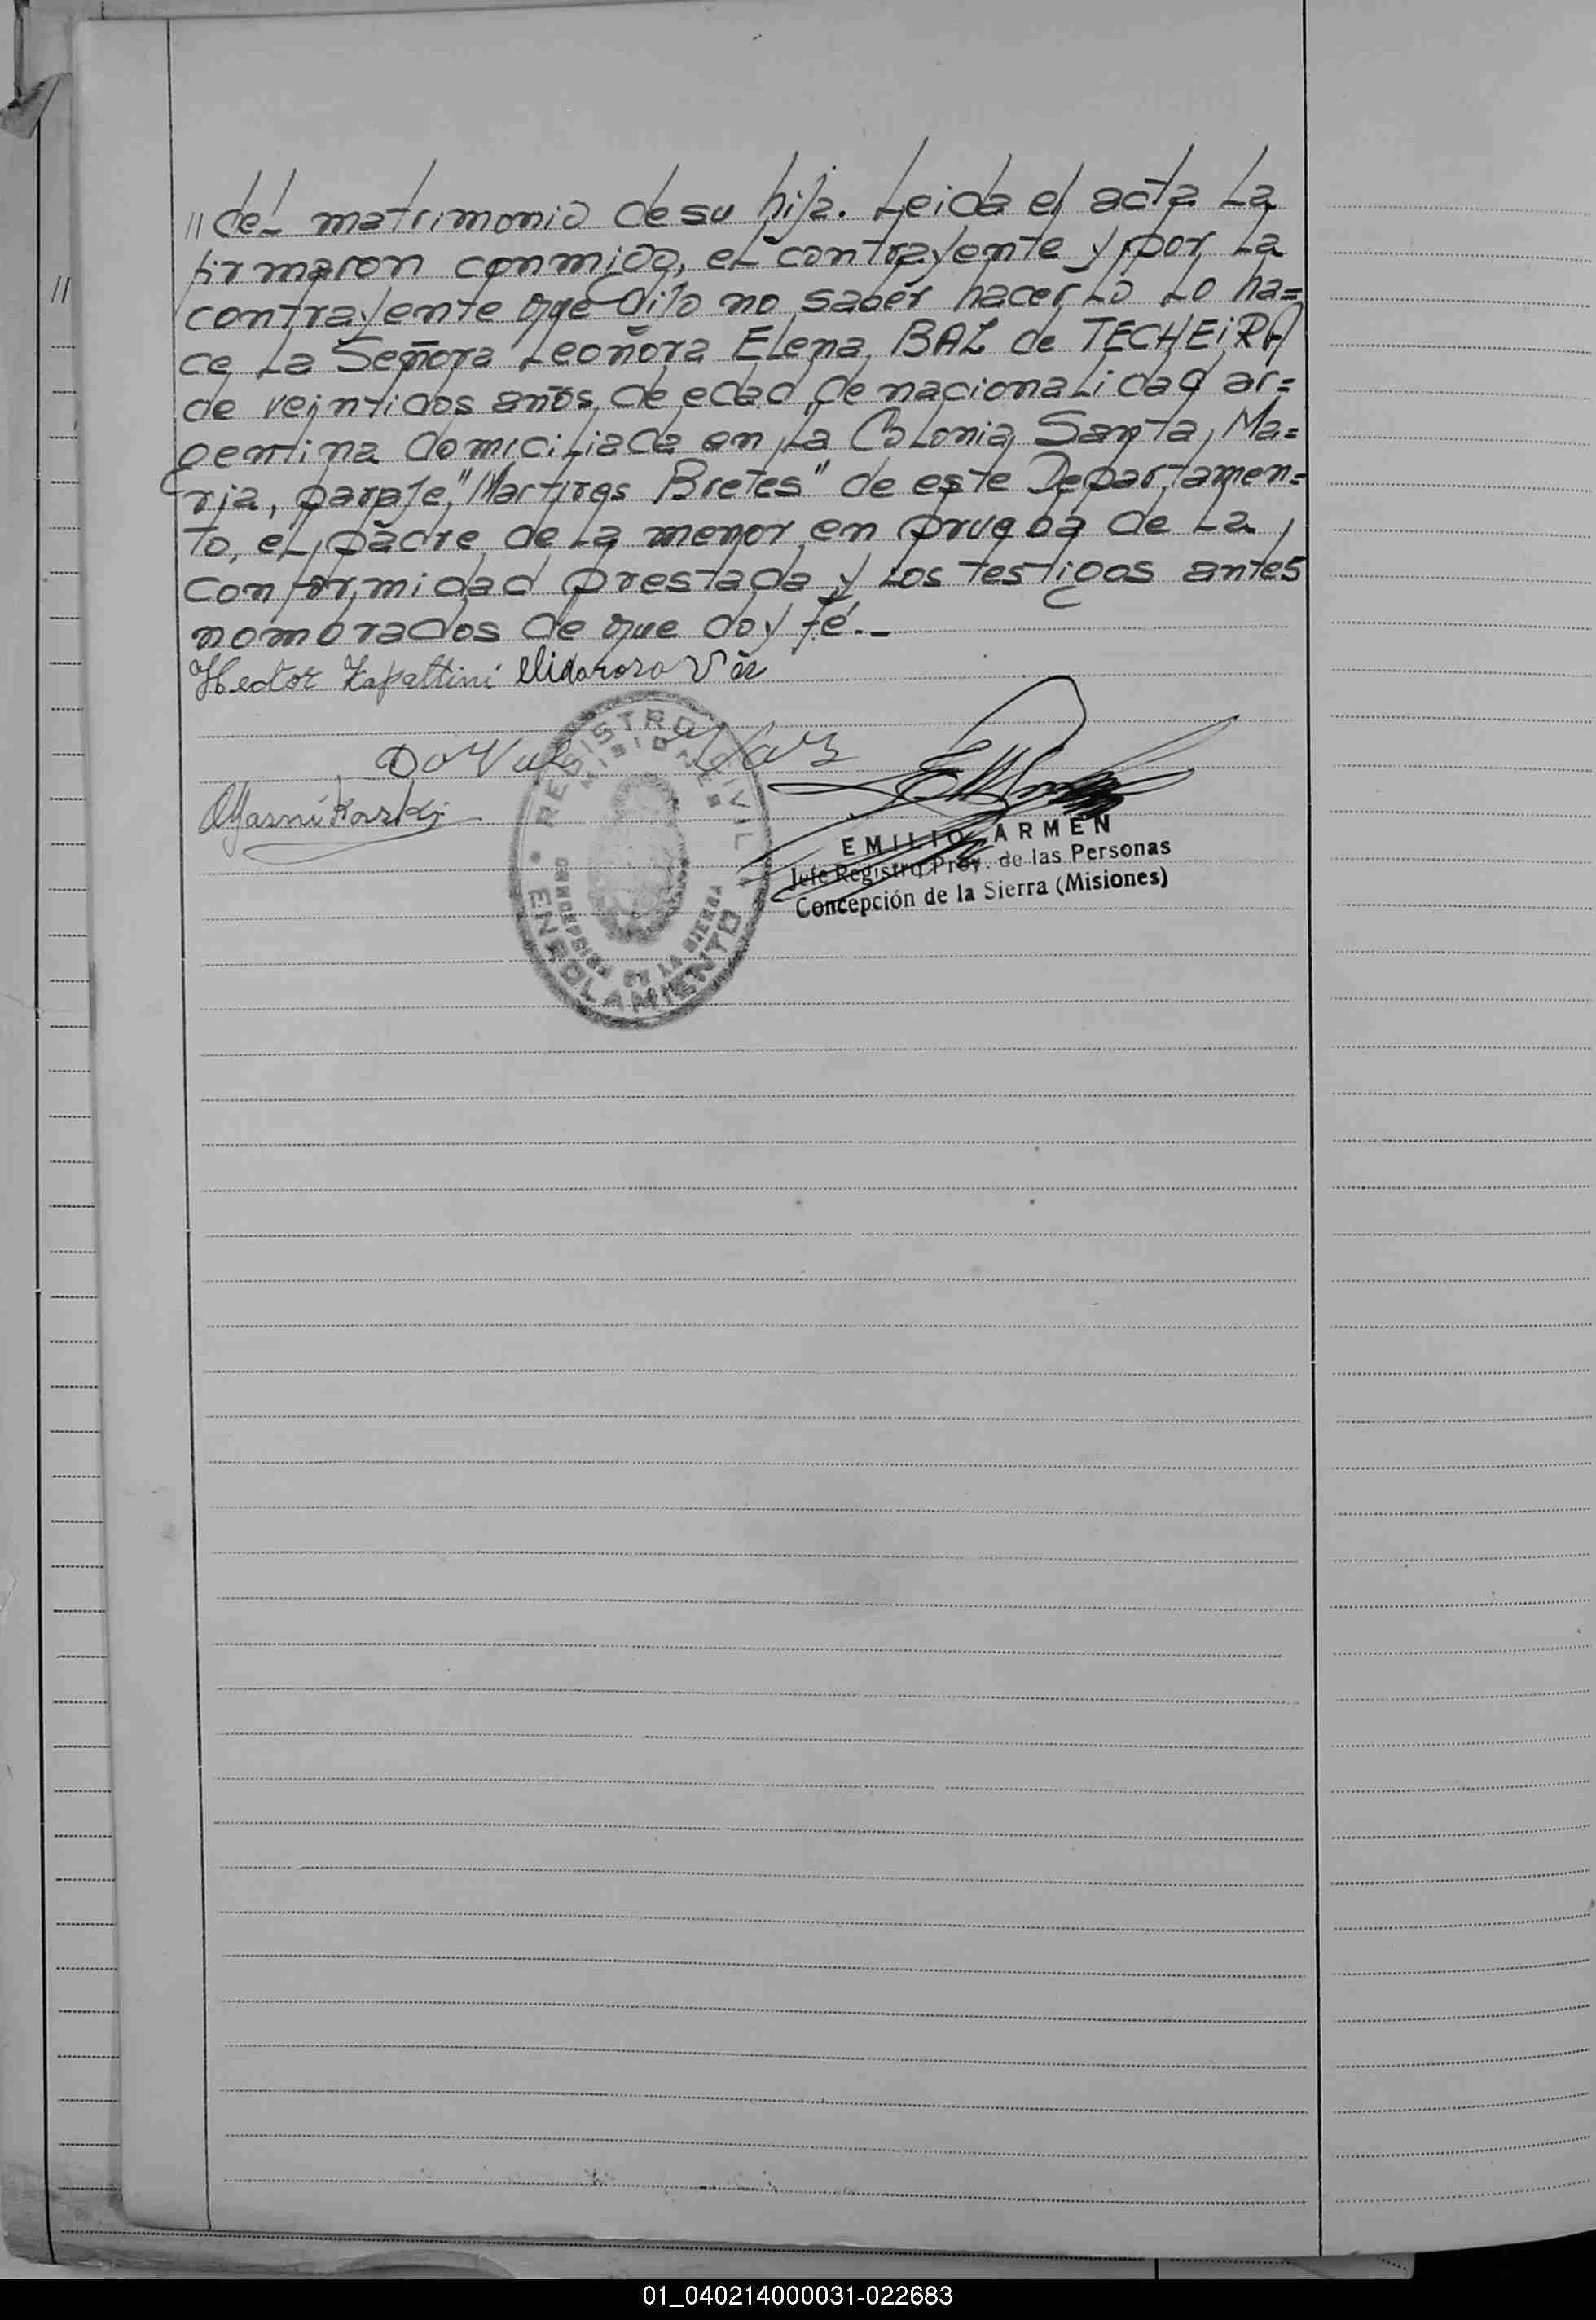 // del matrimonio de su hija. Leida el acta la
firmaron conmigo, el contrayente y por la
contrayente que dijo no saber hacerlo lo ha=
ce la Señora Leoñora Elena BAL de TECHEiRA
de veintidos años de edad, de nacionalidad ar=
gentina domiciliada en la Colonia Santa Ma=
ria, paraje "Martires Bretes" de este Departamen=
to, el padre de la menor en prueba de la
conformidad prestada y los testigos antes
nombrados de que doy fé.-
Hector Zapattini
REGISTRO CIVIL
MISIONES
CONCEPCION DE LA SIERRA
ENROLAMIENTO
EMILIO ARMEN
Jefe Registro Prov. de las Personas
Concepción de la Sierra (Misiones)
//
01_040214000031-022683